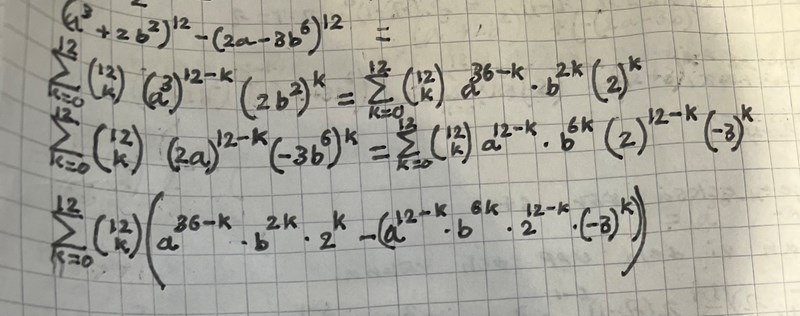 (a³ + 2b²)¹² - (2a - 3b⁶)¹² =
∑_{k=0}^{12} (12 k) (a³)^{12-k} (2b²)^k = ∑_{k=0}^{12} (12 k) a^{36-k} · b^{2k} (2)^k
∑_{k=0}^{12} (12 k) (2a)^{12-k} (-3b⁶)^k = ∑_{k=0}^{12} (12 k) a^{12-k} · b^{6k} (2)^{12-k} (-3)^k
∑_{k=0}^{12} (12 k) (a^{36-k} · b^{2k} · 2^k - (a^{12-k} · b^{6k} · 2^{12-k} · (-3)^k))